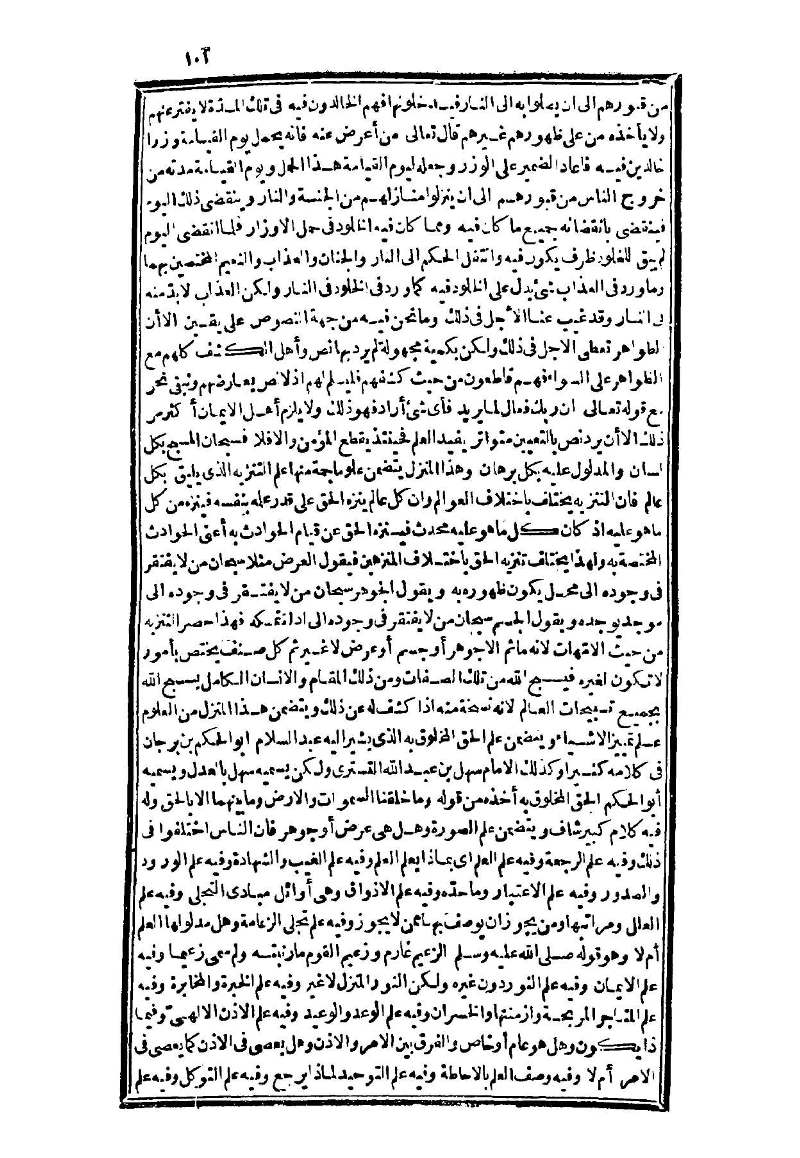 ١٠٢
من قبورهم الى ان يصلوا به الى النار فيدخلونها فهم الخالدون فيه فى تلك المدة لا يفتر عنهم
ولا يأخذه من على ظهورهم غيرهم قال تعالى من أعرض عنه فانه يحمل يوم القيامة وزرا
خالدين فيه فاعاد الضمير على الوزر وجعله ليوم القيامة هذا الحمل ويوم القيامة مدته من
خروج الناس من قبورهم الى ان ينزلوا منازلهم من الجنة والنار وينقضى ذلك اليوم
فينقضى بانقضائه جميع ما كان فيه ومما كان فيه الخلود فى حمل الاوزار فلما انقضى اليوم
لم يبق للخلود ظرف يكون فيه وانتقل الحكم الى النار والجنان والعذاب والنعيم المختصين بهما
وما ورد فى العذاب شئ يدل على الخلود فيه كما ورد فى الخلود فى النار ولكن العذاب لا بد منه
فى النار وقد غيب عنا الأجل فى ذلك وما نحن فيه من جهة النصوص على يقين الا أن
الظواهر تعطى الاجل فى ذلك ولكن بكمية مجهولة لم يرد بها نص وأهل الكشف كلهم مع
الظواهر على السواء فهم قاطعون من حيث كشفهم فليسلم لهم اذ لا نص يعارضهم ونبقى نحن
مع قوله تعالى ان ربك فعال لما يريد فأى شئ أراد فهو ذلك ولا يلزم أهل الايمان أكثر من
ذلك الا أن يرد نص بالتعيين متواتر يفيد العلم فحينئذ يقطع المؤمن والا فلا فسبحان المسبح بكل
لسان والمدلول عليه بكل برهان وهذا المنزل يتضمن علوما جمة منها علم التنزيه الذى يليق بكل
عالم فان التنزيه يختلف باختلاف العوالم وان كل عالم ينزه الحق على قدر علمه بنفسه فينزه من كل
ما هو عليه اذ كان كل ما هو عليه محدث فينزه الحق عن قيام الحوادث به أعنى الحوادث
المختصة به ولهذا يختلف تنزيه الحق باختلاف المنزهين فيقول العرض مثلا سبحان من لا يفتقر
فى وجوده الى محل يكون ظهوره به ويقول الجوهر سبحان من لا يفتقر فى وجوده الى
موجد يوجده ويقول الجسم سبحان من لا يفتقر فى وجوده الى اداة تمسكه فهذا حصر التنزيه
من حيث الامهات لانه ما ثم الا جوهر أو جسم أو عرض لا غير ثم كل صنف يختص بأمور
لا تكون لغيره فيسبح الله من تلك الصفات ومن ذلك المقام والانسان الكامل يسبح الله
بجميع تسبيحات العالم لانه نسخة منه اذا كشف له عن ذلك ويتضمن هذا المنزل من العلوم
علم تمييز الاشياء ويتضمن علم الحق المخلوق به الذى يشير اليه عبد السلام ابو الحكم بن برجان
فى كلامه كثيرا وكذلك الامام سهل بن عبد الله التسترى ولكن يسميه سهل بالعدل ويسميه
أبو الحكم الحق المخلوق به أخذه من قوله وما خلقنا السموات والارض وما بينهما الا بالحق وله
فيه كلام كبير شاف ويتضمن علم الصورة وهل هى عرض أو جوهر فان الناس اختلفوا فى
ذلك وفيه علم الرجعة وفيه علم العلم اى بماذا يعلم العلم وفيه علم الغيب والشهادة وفيه علم الورود
والصدور وفيه علم الاعتبار وما حده وفيه علم الاذواق وهى أوائل مبادى التجلى وفيه علم
العلل ومراتبها ومن يجوز ان يوصف بها ممن لا يجوز وفيه علم تجلى الزعامة وهل مدلولها العلم
أم لا وهو قوله صلى الله عليه وسلم الزعيم غارم وزعيم القوم ما رتبته ولم سمى زعيما وفيه
علم الايمان وفيه علم النور دون غيره ولكن النور المنزل لا غير وفيه علم الخبرة والمخابرة وفيه
علم المتاجر المربحة وازمنتها والخسران وفيه علم الوعد والوعيد وفيه علم الاذن الالهى وفيما
ذا يكون وهل هو عام أو خاص والفرق بين الامر والاذن وهل يعصى فى الاذن كما يعصى فى
الامر أم لا وفيه وصف العلم بالاحاطة وفيه علم التوحيد لماذا يرجع وفيه علم التوكل وفيه علم